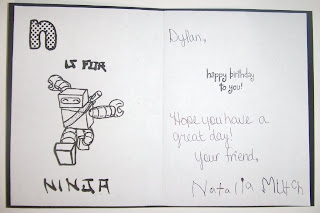 n
IS FOR
NINJA
Dylan,
happy birthday
to you!
Hope you have a
great day!
your friend,
Natalia